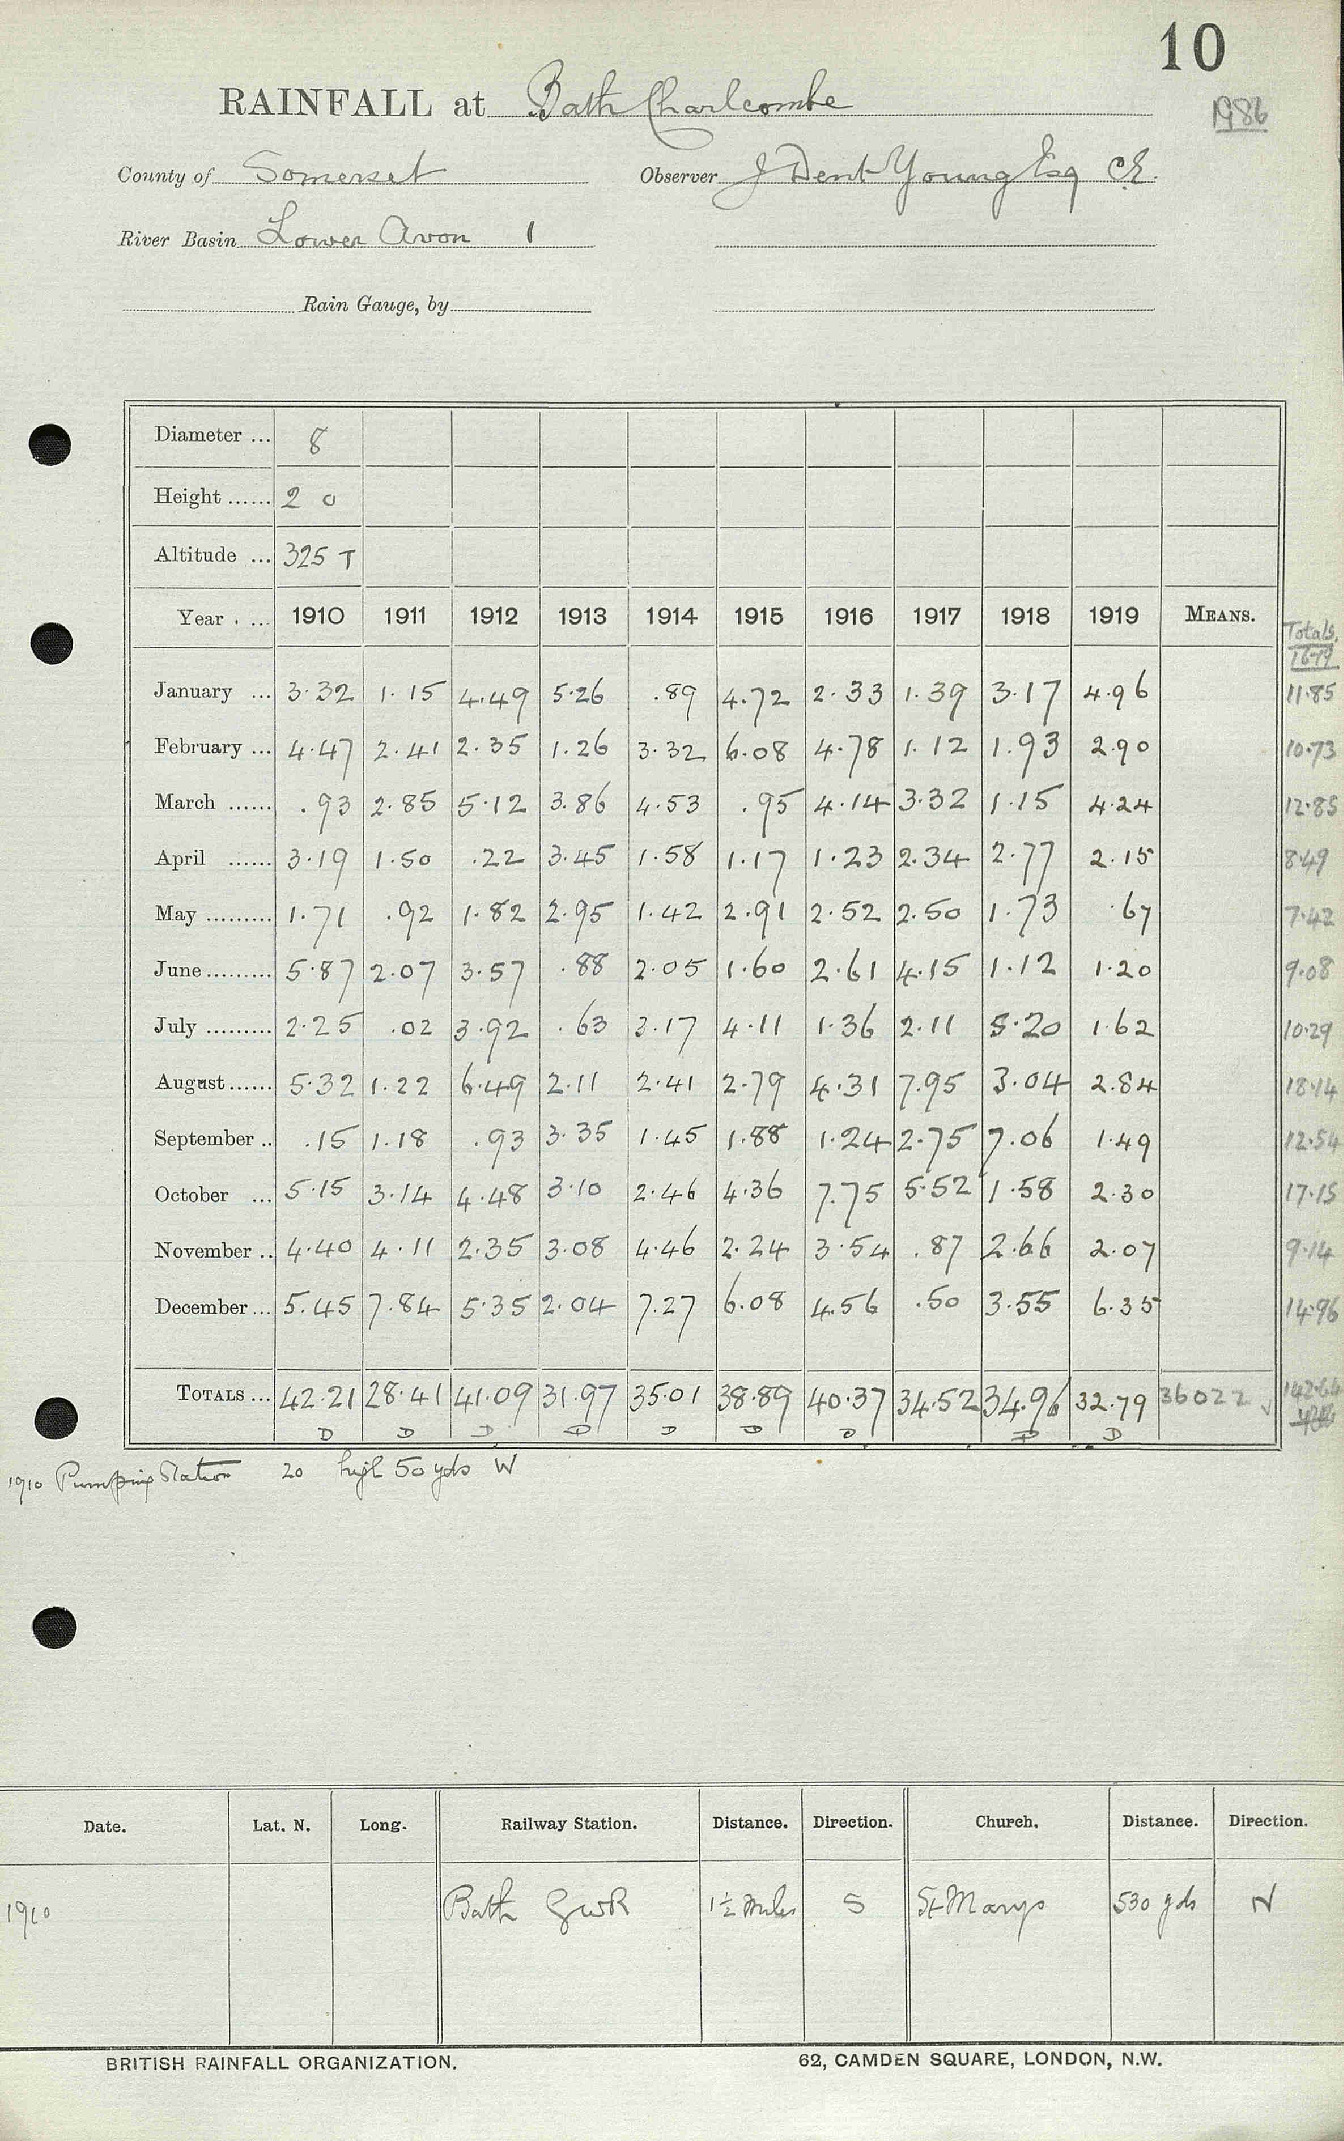 10
RAINFALL at Bath Charlcombe
1986
County of Somerset Observer J Dent Young Esq CE.
River Basin Lower Avon 1
Rain Gauge, by
Diameter ... 8
Height ...... 2 0
Altitude ... 325 T
Year ... 1910 1911 1912 1913 1914 1915 1916 1917 1918 1919 MEANS. Totals 16-19
January ... 3.32 1.15 4.49 5.26 .89 4.72 2.33 1.39 3.17 4.96 11.85
February ... 4.47 2.41 2.35 1.26 3.32 6.08 4.78 1.12 1.93 2.90 10.73
March ...... .93 2.85 5.12 3.86 4.53 .95 4.14 3.32 1.15 4.24 12.85
April ...... 3.19 1.50 .22 3.45 1.58 1.17 1.23 2.34 2.77 2.15 8.49
May ......... 1.71 .92 1.82 2.95 1.42 2.91 2.52 2.50 1.73 .67 7.42
June ......... 5.87 2.07 3.57 .88 2.05 1.60 2.61 4.15 1.12 1.20 9.08
July ......... 2.25 .02 3.92 .63 3.17 4.11 1.36 2.11 5.20 1.62 10.29
August ...... 5.32 1.22 6.49 2.11 2.41 2.79 4.31 7.95 3.04 2.84 18.14
September .. .15 1.18 .93 3.35 1.45 1.88 1.24 2.75 7.06 1.49 12.54
October ... 5.15 3.14 4.48 3.10 2.46 4.36 7.75 5.52 1.58 2.30 17.15
November .. 4.40 4.11 2.35 3.08 4.46 2.24 3.54 .87 2.66 2.07 9.14
December ... 5.45 7.84 5.35 2.04 7.27 6.08 4.56 .50 3.55 6.35 14.96
TOTALS ... 42.21 28.41 41.09 31.97 35.01 38.89 40.37 34.52 34.96 32.79 36022 ✓ 142.64
D D D D D D D D D
1910 Pumping Station 20 high 50 yds W
Date. Lat. N. Long. Railway Station. Distance. Direction. Church. Distance. Direction.
1910 Bath GWR 1½ miles S St Marys 530 yds N
BRITISH RAINFALL ORGANIZATION. 62, CAMDEN SQUARE, LONDON, N.W.